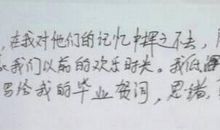 ,在我对他们的记忆中挥之不去,
我们以前的欢乐时光。我低
写给我的毕业贺词,思绪